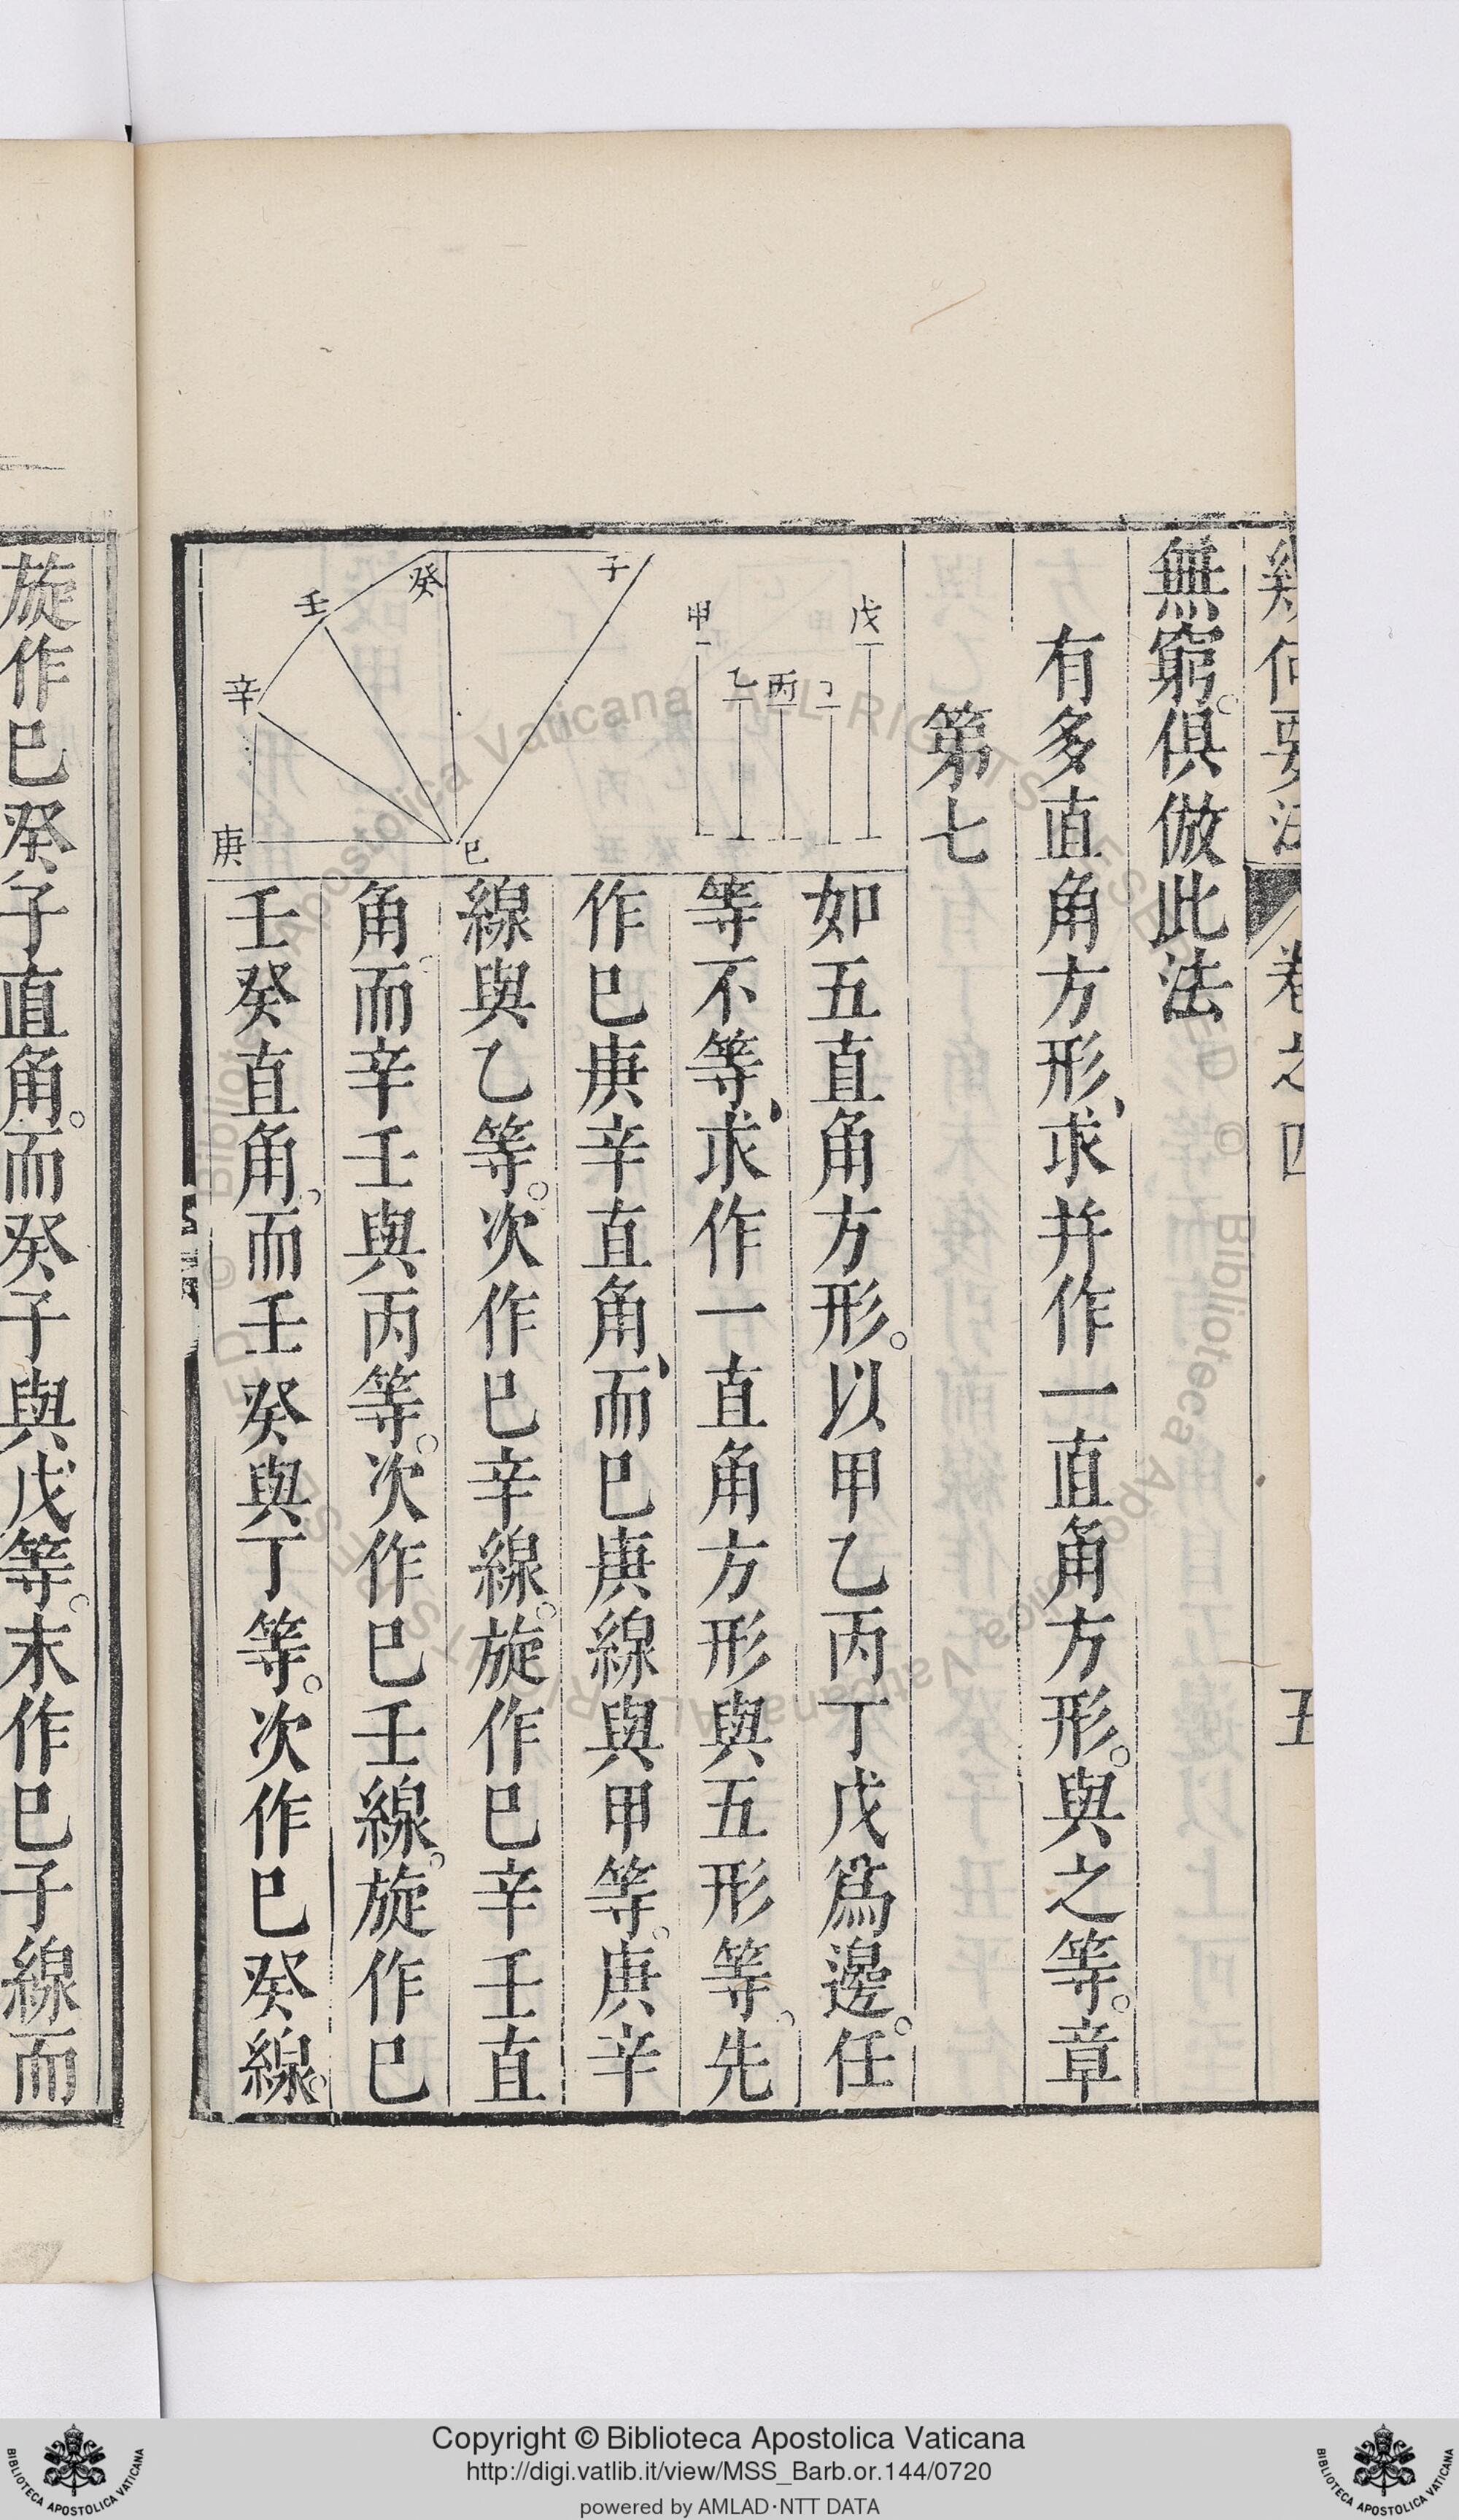 幾何要法 卷之四 五
無窮。俱倣此法
有多直角方形、求并作一直角方形。與之等。章
第七
如五直角方形。以甲乙丙丁戊爲邊。任
等不等、求作一直角方形與五形等。先
作巳庚辛直角、而巳庚線與甲等。庚辛
線與乙等。次作巳辛線。旋作巳辛壬直
角。而辛壬與丙等。次作巳壬線。旋作巳
壬癸直角。而壬癸與丁等。次作巳癸線。
戊
丙
乙
甲
子
癸
壬
辛
庚
巳
旋作巳癸子直角。而癸子與戊等。末作巳子線而
Copyright © Biblioteca Apostolica Vaticana
http://digi.vatlib.it/view/MSS_Barb.or.144/0720
powered by AMLAD·NTT DATA
BIBLIOTECA APOSTOLICA VATICANA
BIBLIOTECA APOSTOLICA VATICANA